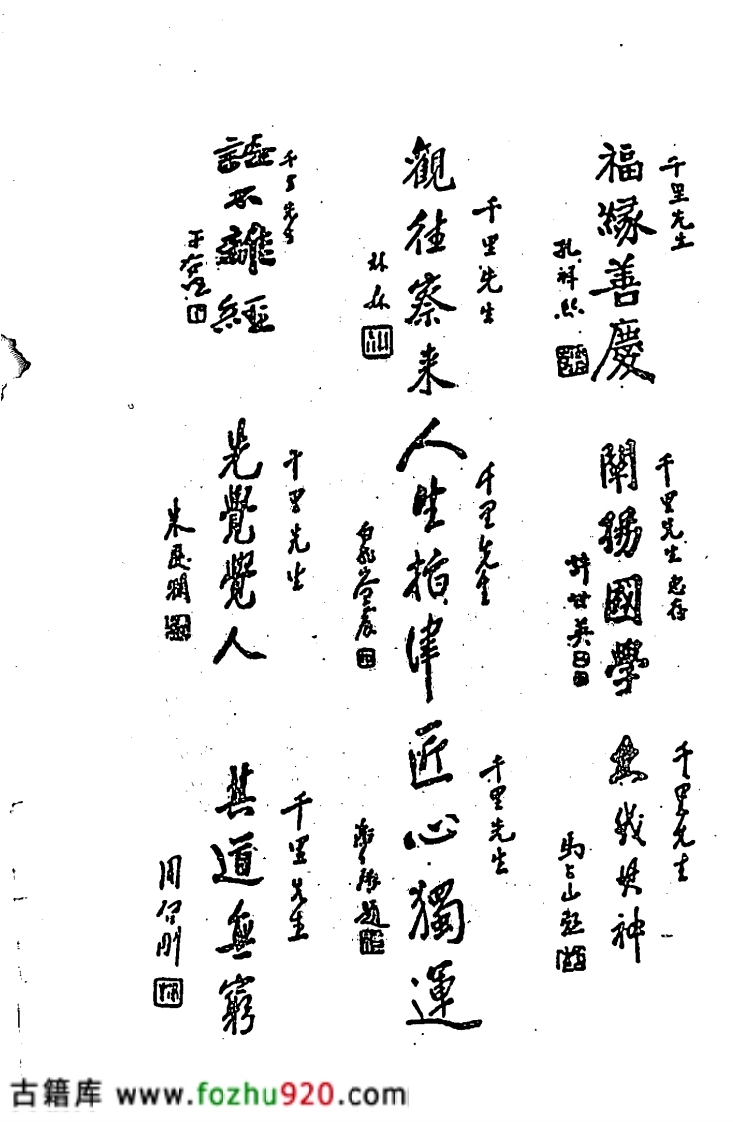 千里先生
福緣善慶
孔祥熙
千里先生惠存
闡揚國學
薛甘英
千里先生
馬占山題
千里先生
觀往察来
林森
千里先生
人生指津
千里先生
匠心獨運
題
千里先生
語不離經
于右任
千里先生
先覺覺人
千里先生
其道無窮
周佰剛
古籍库 www.fozhu920.com